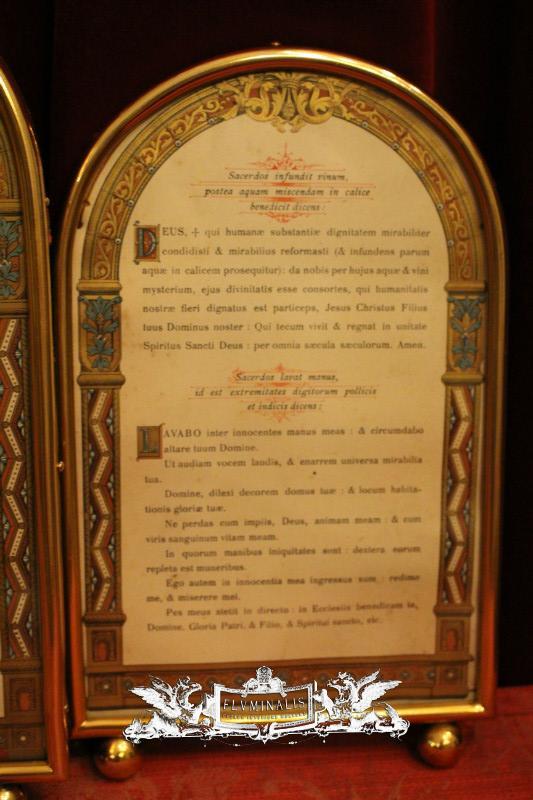 Sacerdos infundit vinum,
postea aquam miscendam in calice
benedicit dicens :
DEUS, ✠ qui humanæ substantiæ dignitatem mirabiliter
condidisti & mirabilius reformasti (& infundens parum
aquæ in calicem prosequitur): da nobis per hujus aquæ & vini
mysterium, ejus divinitatis esse consortes, qui humanitatis
nostræ fieri dignatus est particeps, Jesus Christus Filius
tuus Dominus noster : Qui tecum vivit & regnat in unitate
Spiritus Sancti Deus : per omnia sæcula sæculorum. Amen.
Sacerdos lavat manus,
id est extremitates digitorum pollicis
et indicis dicens :
LAVABO inter innocentes manus meas : & circumdabo
altare tuum Domine.
Ut audiam vocem laudis, & enarrem universa mirabilia
tua.
Domine, dilexi decorem domus tuæ : & locum habita-
tionis gloriæ tuæ.
Ne perdas cum impiis, Deus, animam meam : & cum
viris sanguinum vitam meam.
In quorum manibus iniquitates sunt : dextera eorum
repleta est muneribus.
Ego autem in innocentia mea ingressus sum : redime
me, & miserere mei.
Pes meus stetit in directo : in Ecclesiis benedicam te,
Domine. Gloria Patri, & Filio, & Spiritui sancto, etc.
FLVMINALIS